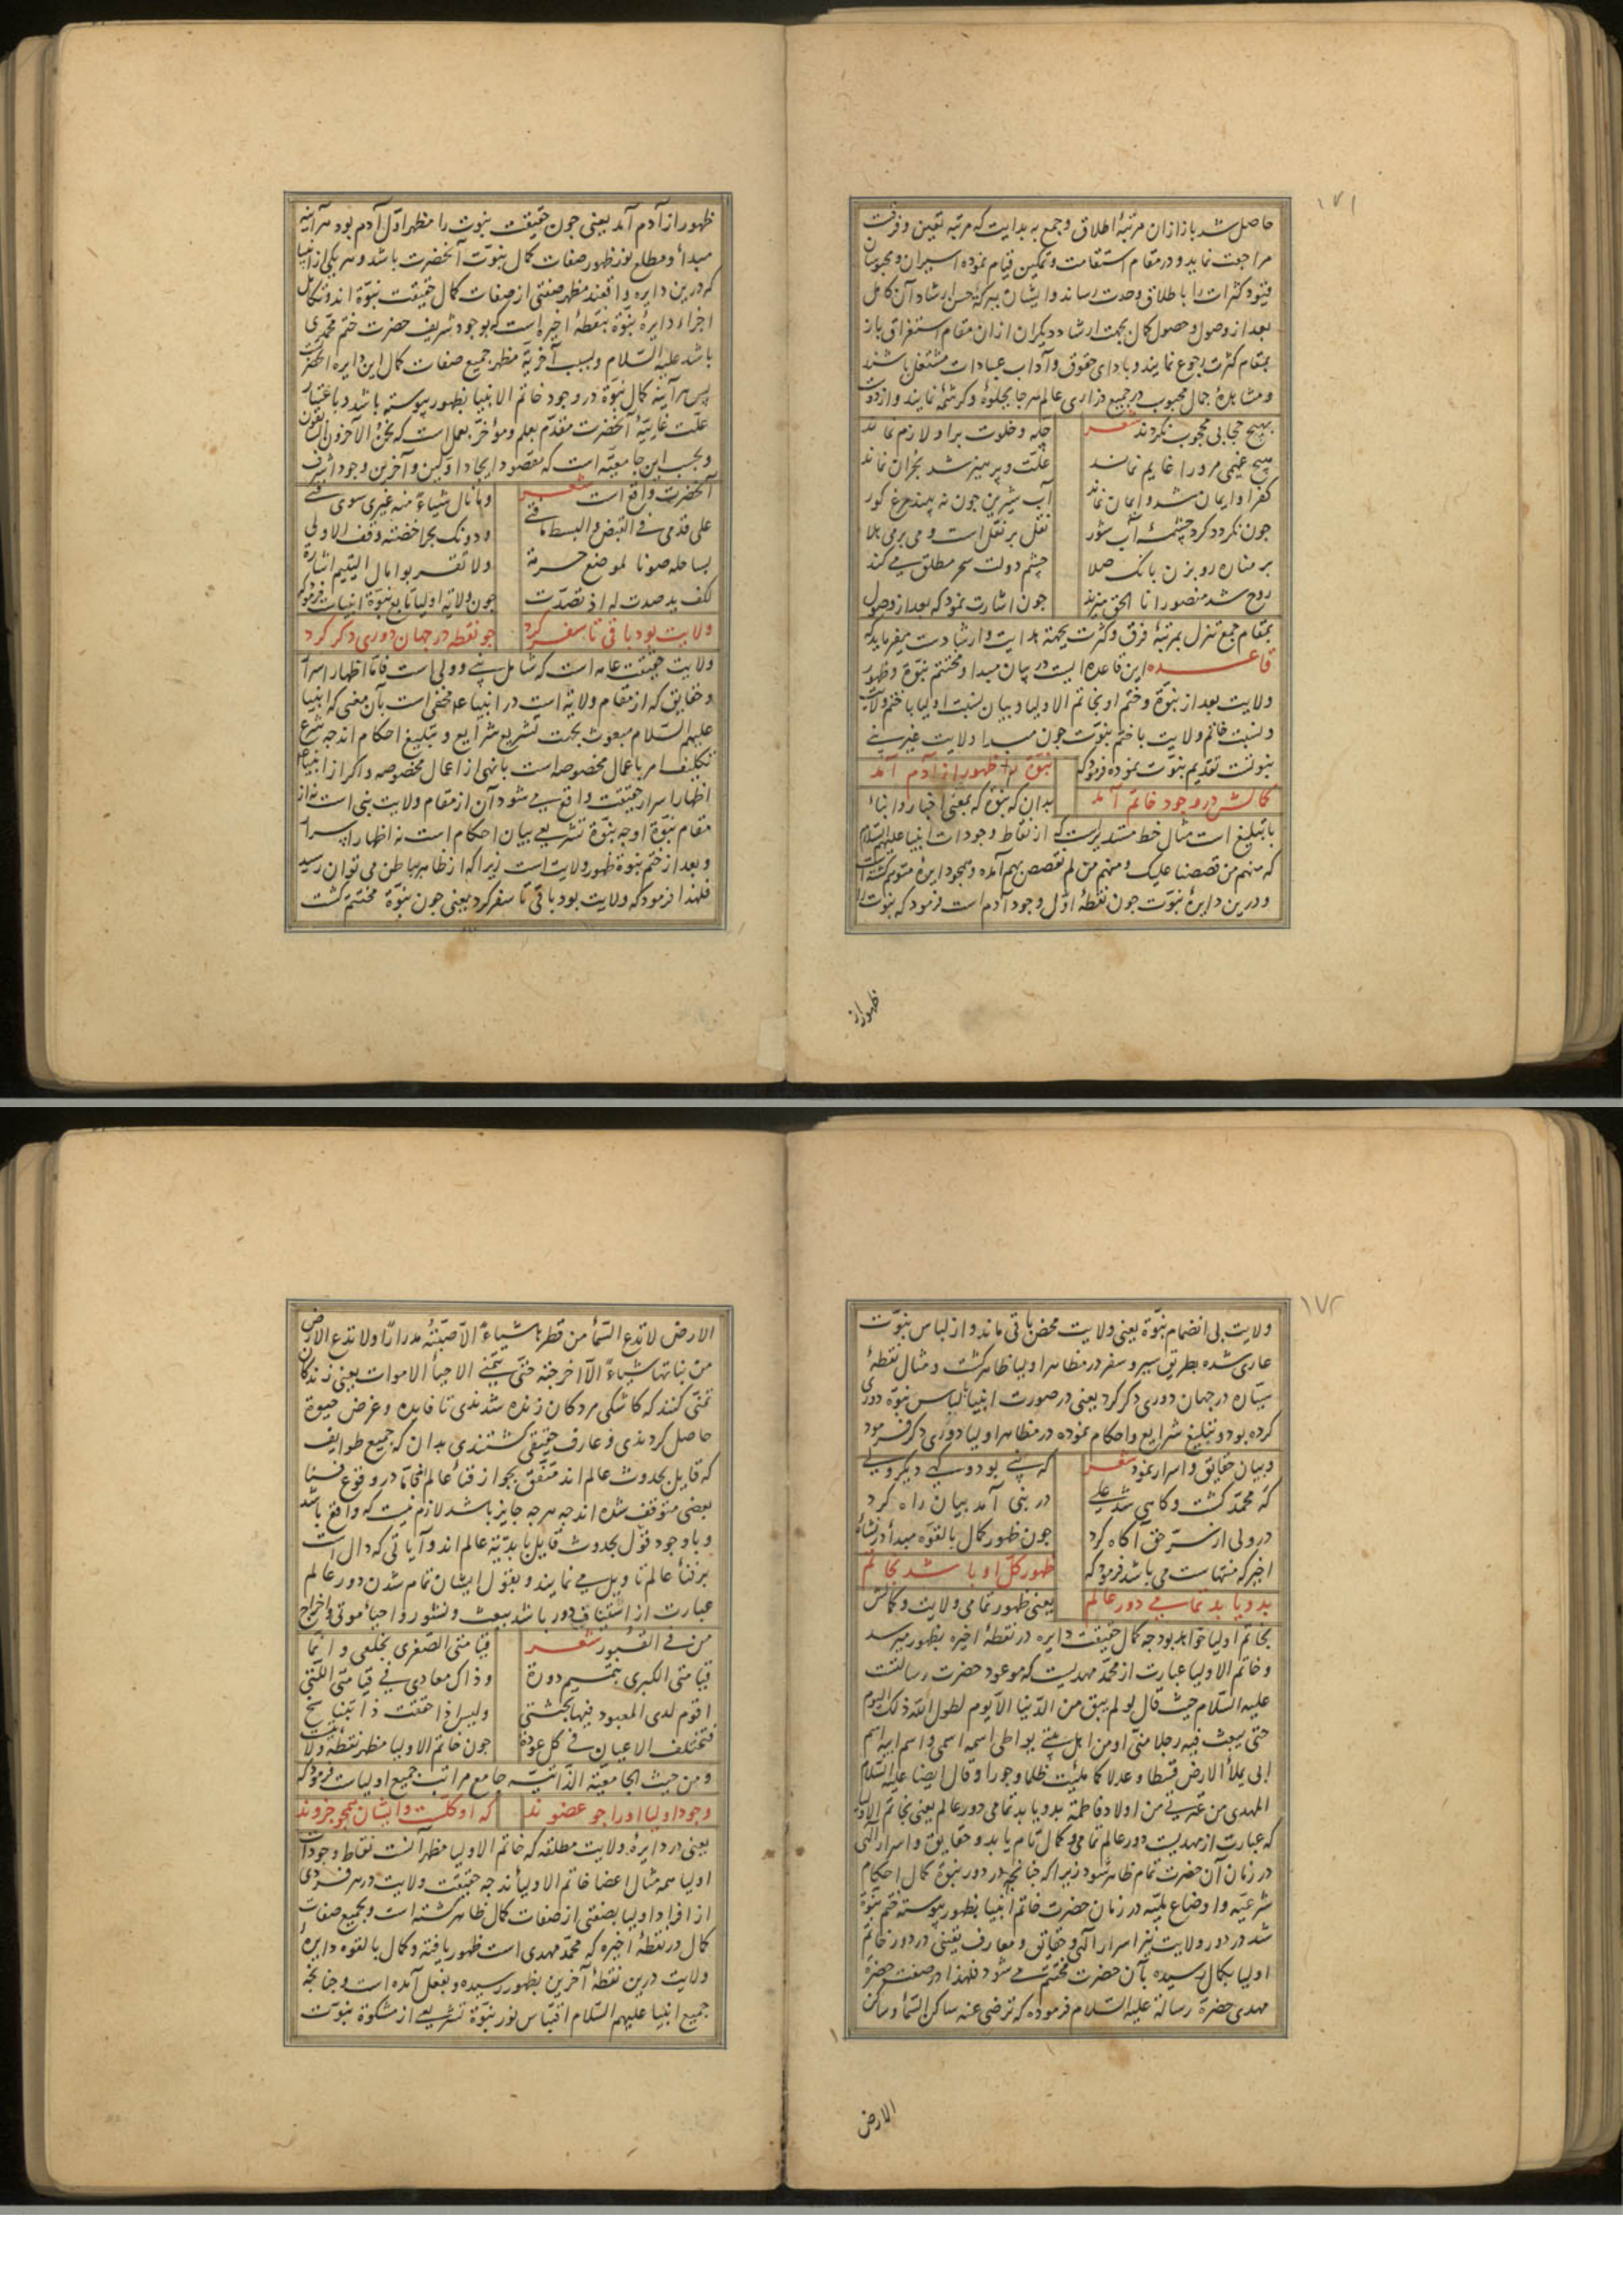 ۱۷۱
حاصل شد باز ازان مرتبهٔ اطلاق و جمع به بدایت که مرتبه تعین و فرقت
مراجعت نماید و در مقام استقامت و تمکین قیام نموده اسیران و محبوسان
قیود کثرات را باطلاق وحدت رساند و ایشان ببرکهٔ حسن ارشاد آن کامل
بعد از وصول و حصول کمال بجهت ارشاد دیگران ازان مقام استغراق باز
بمقام کثرت رجوع نمایند و باداى حقوق و آداب عبادات مشتغل باشند
و مشاهدهٔ جمال محبوب در جمیع ذراری عالم هر جا بجلوهٔ و کرشمهٔ نمایند و از دوست
بهیچ حجابی محجوب نگردند شعر چله و خلوت برا و لازم نماند
هیچ غیمی مرورا غایم نماند علت و پرهیز شد بحران نماند
کفر او ایمان شد و ایمان نماند آب شیرین چون نه بیند مرغ کور
چون نگردد گرد چشمهٔ آب شور نقل بر نقل است و می بر می هلا
بر مناره رو بزن بانک صلا چشم دولت سحر مطلق می کند
روح شد منصور انا الحق میزند چون اشارت نمود که بعد از وصول
بمقام جمع تنزل بمرتبهٔ فرق و کثرت بجهة هدایت و ارشادست میفرماید که
قاعده این قاعده ایست در بیان مبدا و مختتم نبوّة و ظهور
ولایت بعد از نبوّة و ختم او بخاتم الاولیا و بیان نسبت اولیا با ختم ولایت
و نسبت خاتم ولایت با ختم نبوّت چون مبدا ولایت غیر نبی
نبوتست تقدیم نبوّت نموده فرمود که نبوّة را ظهور از آدم آمد
کمالش در وجود خاتم آمد بدان که نبوّة که بمعنی اخبار و انباء
با تبلیغ است مثال خط مستدیر است که از نقاط وجودات انبیا علیهم السلام
که منهم من قصصنا علیک و منهم من لم نقصص بهم آمده و همچو دایرهٔ متوهم گشته است
و درین دایرهٔ نبوّت چون نقطهٔ اوّل وجود آدم است فرمود که نبوّت را
ظهور از
ظهور از آدم آمد یعنی چون حقیقت نبوت را مظهر اوّل آدم بود هر آینه
مبدأ و مطلع نور ظهور صفات کمال نبوّت آنحضرت باشد و هر یکی از انبیا
که درین دایره واقعند مظهر صفتی از صفات کمال حقیقت نبوّة اند و تکامل
اجزاء دایرهٔ نبوّة بنقطهٔ اخیره است که بوجود شریف حضرت ختم محمدی
باشد علیه السّلام و بسبب آخریّة مظهر جمیع صفات کمال این دایره آنحضرت
پس هر آینه کمال نبوّة در وجود خاتم الانبیا بظهور پیوسته باشد و باعتبار
علّت غاییّة آنحضرت مقدّم بعلم و مؤخر بعمل است که نحن الآخرون السابقون
و بحسب این جامعیّه است که مقصود ایجاد اوّلین و آخرین وجود اشرف
آنحضرت واقع است شعر و ما نال شیاءً منه غیری سوی فتی
علی قدمی فی القبض و البسط ما فتی و دونک بحرا خضته وقف الاولی
بساحله صونا لموضع حرمة ولا تقربوا مال الیتیم اشارة
لکف ید صدت له اذ تصدّت چون ولایة اولیا تابع نبوّة انبیاست فرمود که
ولایت بود باقی تا سفر کرد چو نقطه در جهان دوری دکر کرد
ولایت حقیقت عامه است که شامل نبی و ولی است فامّا اظهار اسرار
و حقایق که از مقام ولایة است در انبیا علیه مخفی است بآن معنی که انبیا
علیهم السّلام مبعوث بجهت تشریع شرایع و تبلیغ احکام اند چه شرع
تکلیف امر باعمال مخصوصه است یا نهی از اعمال مخصوصه و اکر از انبیا
اظهار اسرار حقیقت واقع می شود آن از مقام ولایت نبی است نه از
مقام نبوّة او چه نبوّة تشریعی بیان احکام است نه اظهار اسرار
و بعد از ختم نبوة ظهور ولایت است زیرا که از ظاهر بباطن می توان رسید
فلهذا فرمود که ولایت بود باقی تا سفر کرد یعنی چون نبوّة مختتم گشت
۱۷۲
ولایت بی انضمام نبوّة یعنی ولایت محض باقی ماند و از لباس نبوّت
عاری شده بطریق سیر و سفر در مظاهر اولیا ظاهر گشت و مثال نقطهٔ
سیّاره در جهان دوری دکر کرد یعنی در صورت انبیا بلباس نبوّة دوری
کرده بود و بتبلیغ شرایع و احکام نموده در مظاهر اولیا دوری دکر فرمود
و بیان حقایق و اسرار نمود شعر که نبی بود و گهی دیکر ولی
که محمّد گشت و کاهی شد علی در نبی آمد بیان راه کرد
در ولی از سرّ حق آکاه کرد چون ظهور کمال بالقوّه مبدأ در نشاء
اخیر که منتهاست می باشد فرمود که ظهور کلّ او باشد بخاتم
بدو یابد تمامی دور عالم یعنی ظهور تمامی ولایت و کمالش
بخاتم اولیا خواهد بود چه کمال حقیقت دایره در نقطهٔ اخیره بظهور میرسد
و خاتم الاولیا عبارت از محمّد مهدیست که موعود حضرت رسالتست
علیه السّلام حیث قال لو لم یبق من الدّنیا الّا یوم لطول الله ذلک الیوم
حتی یبعث فیه رجلا منّی او من اهل بیتی یواطی اسمه اسمی و اسم ابیه اسم
ابی یملأ الارض قسطا و عدلا کما ملیت ظلما و جورا و قال ایضا علیه السّلام
المهدی من عترتی من اولاد فاطمة بدو یابد تمامی دور عالم یعنی بخاتم الاولیا
که عبارت از مهدیست دور عالم تمامی و کمال تمام یابد و حقایق و اسرار الهی
در زمان آن حضرت تمام ظاهر شود زیرا که چنانچه در دور نبوّة کمال احکام
شرعیّه و اوضاع ملیّه در زمان حضرت خاتم انبیا بظهور پیوسته ختم نبوّة
شد در دور ولایت نیز اسرار الهی و حقایق و معارف یقینی در دور خاتم
اولیا بکمال رسیده بآن حضرت مختتم می شود فلهذا در صفت حضرة
مهدی حضرة رسالة علیه السّلام فرموده که ترضی عنه ساکن السّمأ و ساکن
الارض
الارض لا تدع السّمأ من قطرها شیاءً الّا صبّته مدرارًا ولا تدع الارض
من نباتها شیاءً الّا اخرجته حتّی یتمنّی الاحیأ الاموات یعنی زندگان
تمنّی کنند که کاشکی مردکان زنده شدندی تا فایده و غرض حیوة
حاصل کردندی و عارف حقیقی گشتندی بدان که جمیع طوایف
که قایل بحدوث عالم اند متّفق بجواز فنأ عالم اند امّا در وقوع فنا
بعضی متوقف شده اند چه هر چه جایز باشد لازم نیست که واقع باشد
و با وجود قول بحدوث قایل بابدیّة عالم اند و آیاتی که دال است
بر فنأ عالم تاویل می نمایند و بقول ایشان تمام شدن دور عالم
عبارت از استیناف دور باشد ببعث و نشور و احیأ موتی و اخراج
من فی القبور شعر قیامتی الصّغری بخلعی و انّما
قیامتی الکبری بتتمیم دورة و ذاک معادی فی قیامتی الّتی
اقوم لدی المعبود فیها بجثتی و لیس اذا حققت ذا بتناسخ
فتختلف الاعیان فی کل عودة چون خاتم الاولیا مظهر نقطهٔ ولایت
و من حیث الجامعیّة الذّاتیّه جامع مراتب جمیع اولیاست فرمود که
وجود اولیا او را چو عضو ند که او کلّست و ایشان همچو جزو ند
یعنی در دایرهٔ ولایت مطلقه که خاتم الاولیا مظهر آنست نقاط وجودات
اولیا همه مثال اعضا خاتم الاولیأند چه حقیقت ولایت در هر فردی
از افراد اولیا بصفتی از صفات کمال ظاهر گشته است و بجمیع صفات
کمال در نقطهٔ اخیره که محمّد مهدی است ظهور یافته و کمال بالقوه دایرهٔ
ولایت درین نقطهٔ آخرین بظهور رسیده و بفعل آمده است و چنانچه
جمیع انبیا علیهم السّلام اقتباس نور نبوّة تشریعی از مشکوة نبوّت